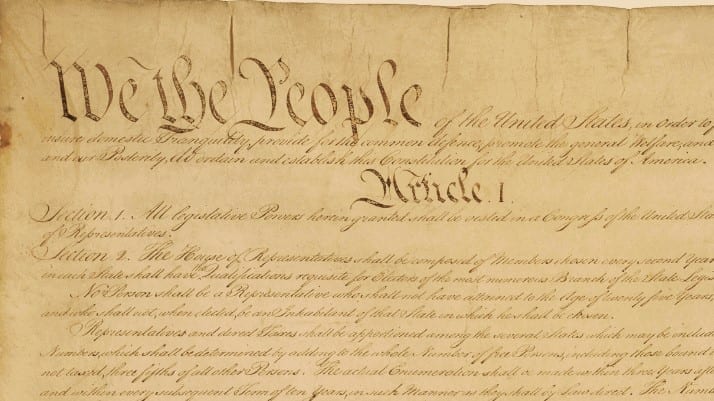 We the People of the United States, in order to
insure domestic Tranquility, provide for the common defence, promote the general Welfare, and
and our Posterity, do ordain and establish this Constitution for the United States of America.
Article. I.
Section. 1. All legislative Powers herein granted shall be vested in a Congress of the United
of Representatives.
Section. 2. The House of Representatives shall be composed of Members chosen every second Year
in each State shall have the Qualifications requisite for Electors of the most numerous Branch of the State
No Person shall be a Representative who shall not have attained to the Age of twenty five Years,
and who shall not, when elected, be an Inhabitant of that State in which he shall be chosen.
Representatives and direct Taxes shall be apportioned among the several States which may be
Numbers, which shall be determined by adding to the whole Number of free Persons, including those bound
not taxed, three fifths of all other Persons. The actual Enumeration shall be made within three Years
and within every subsequent Term of ten Years, in such Manner as they shall by Law direct. The